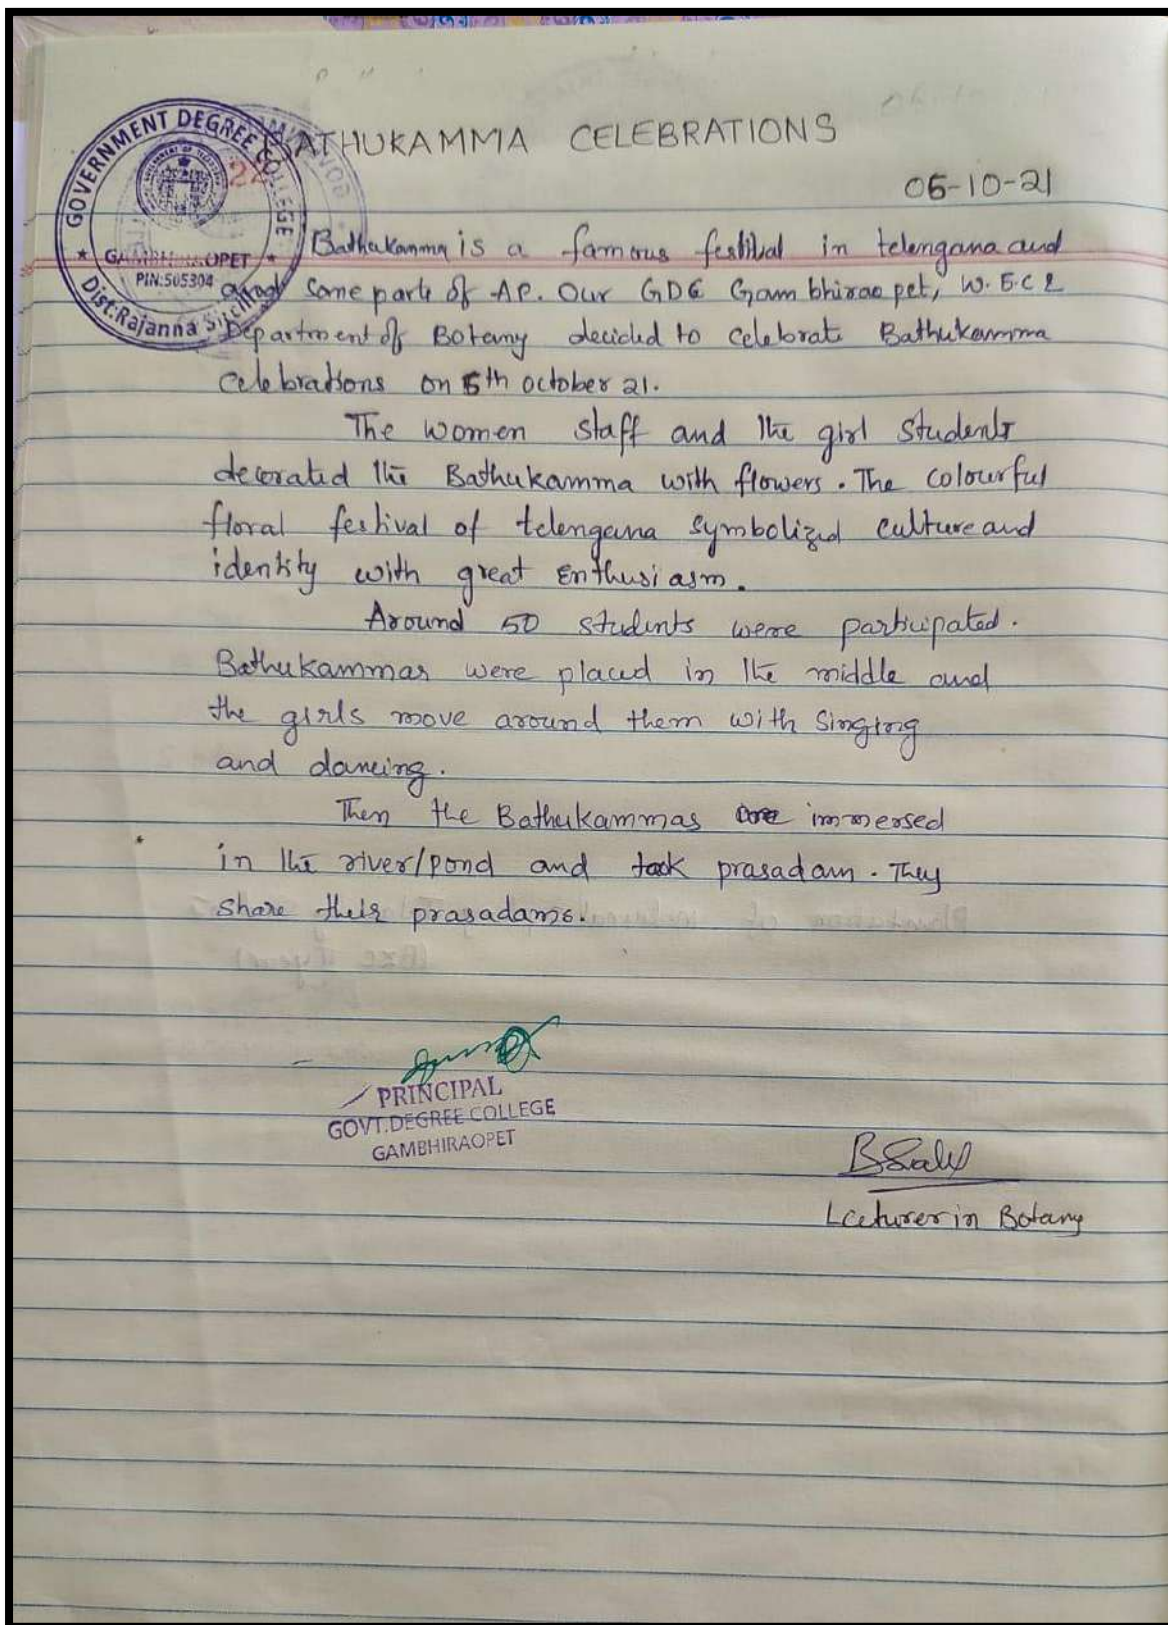 BATHUKAMMA CELEBRATIONS
05-10-21
GOVERNMENT DEGREE COLLEGE
22
GAMBHIRAOPET
PIN:505304
Dist:Rajanna Sircilla
Bathukamma is a famous festival in telengana and
some parts of AP. Our GDC Gambhiraopet, W.E.C &
Department of Botany decided to celebrate Bathukamma
celebrations on 5th october 21.
The women staff and the girl students
decorated the Bathukamma with flowers. The colourful
floral festival of telengana symbolized culture and
identity with great Enthusiasm.
Around 50 students were participated.
Bathukammas were placed in the middle and
the girls move around them with singing
and dancing.
Then the Bathukammas are immersed
in the river/pond and took prasadam. They
share their prasadams.
PRINCIPAL
GOVT.DEGREE COLLEGE
GAMBHIRAOPET
Lceturer in Botany